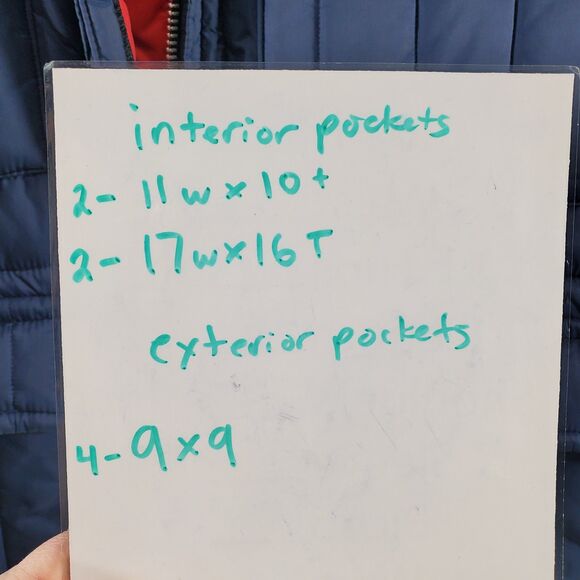 interior pockets
2- 11w x 10t
2- 17w x 16T
exterior pockets
4- 9 x 9